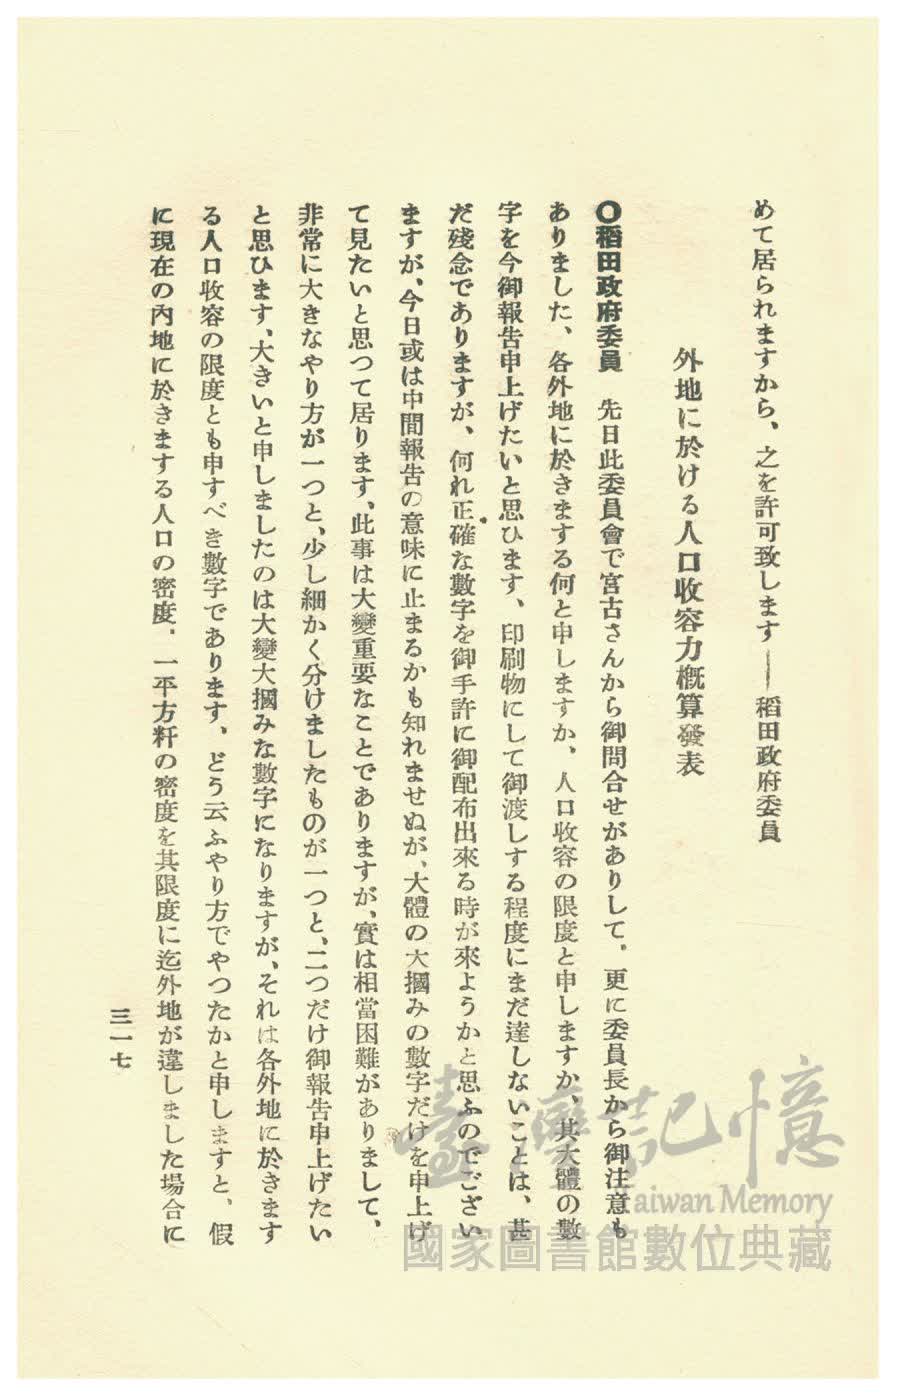 めて居られますから、之を許可致します──稻田政府委員
外地に於ける人口收容力槪算發表
〇稻田政府委員　先日此委員會で宮古さんから御問合せがありして、更に委員長から御注意も
ありました、各外地に於きまする何と申しますか、人口收容の限度と申しますか、其大體の數
字を今御報告申上げたいと思ひます、印刷物にして御渡しする程度にまだ達しないことは、甚
だ殘念でありますが、何れ正確な數字を御手許に御配布出來る時が來ようかと思ふのでござい
ますが、今日或は中間報告の意味に止まるかも知れませぬが、大體の大摑みの數字だけを申上げ
て見たいと思つて居ります、此事は大變重要なことでありますが、實は相當困難がありまして、
非常に大きなやり方が一つと、少し細かく分けましたものが一つと、二つだけ御報告申上げたい
と思ひます、大きいと申しましたのは大變大摑みな數字になりますが、それは各外地に於きます
る人口收容の限度とも申すべき數字であります、どう云ふやり方でやつたかと申しますと、假
に現在の內地に於きまする人口の密度、一平方粁の密度を其限度に迄外地が達しました場合に
三一七
臺灣記憶
Taiwan Memory
國家圖書館數位典藏